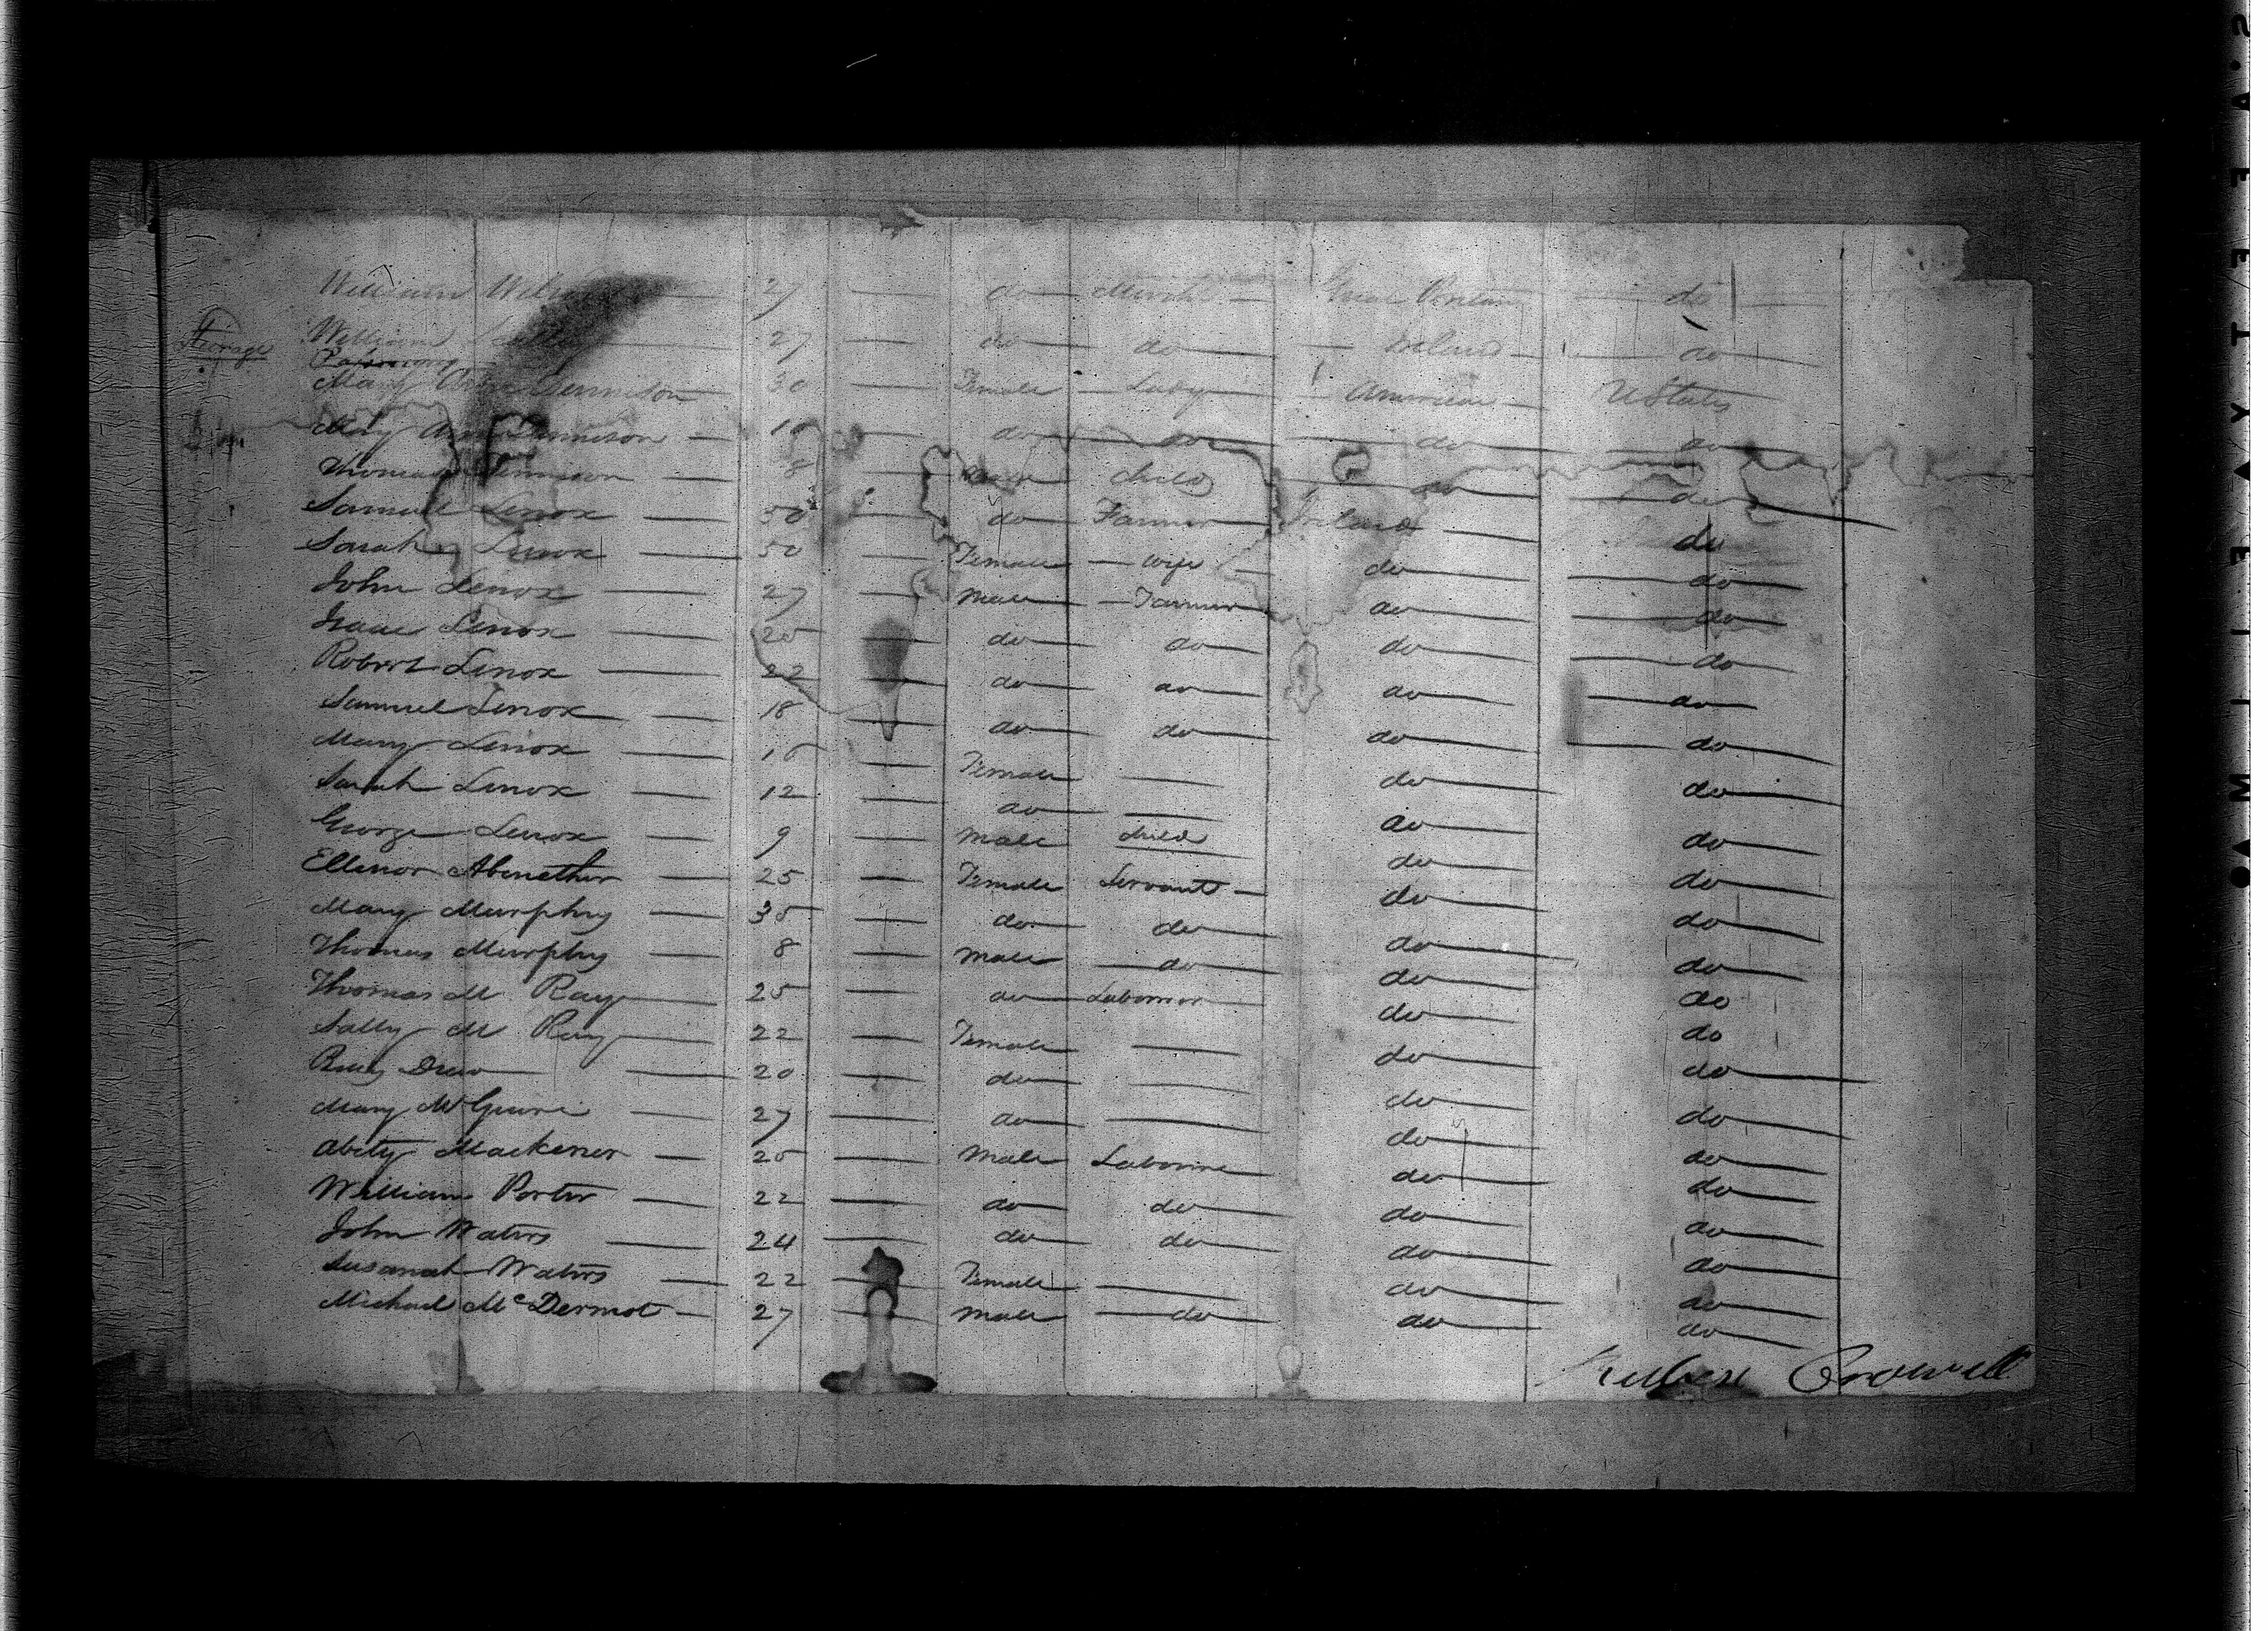 William 27 do Mercht Great Britain do
Steerage William 27 do do Ireland do
Mary Dennison 30 Female Lady American U States
Mary Ann Dennison do do do do
Thomas Dennison 8 Male child do do
Samuel Lenox 50 do Farmer Ireland do
Sarah Lenox 50 Female wife do do
John Lenox 27 Male Farmer do do
Isaac Lenox 20 do do do do
Robert Lenox 22 do do do do
Samuel Lenox 18 do do do do
Mary Lenox 16 Female do do
Sarah Lenox 12 do do do
George Lenox 9 Male child do do
Ellenor Abenether 25 Female Servant do do
Mary Murphy 35 do do do do
Thomas Murphy 8 Male do do do
Thomas M Ray 25 do Laborror do do
Sally M Ray 22 Female do do
Drew 20 do do do
Mary McGuire 27 do do do
Abity Mackener 25 Male do do
William Porter 22 do do do do
John Waters 24 do do do do
Susanah Waters 22 Female do do
Michael McDermot 27 Male do do do
Crowell